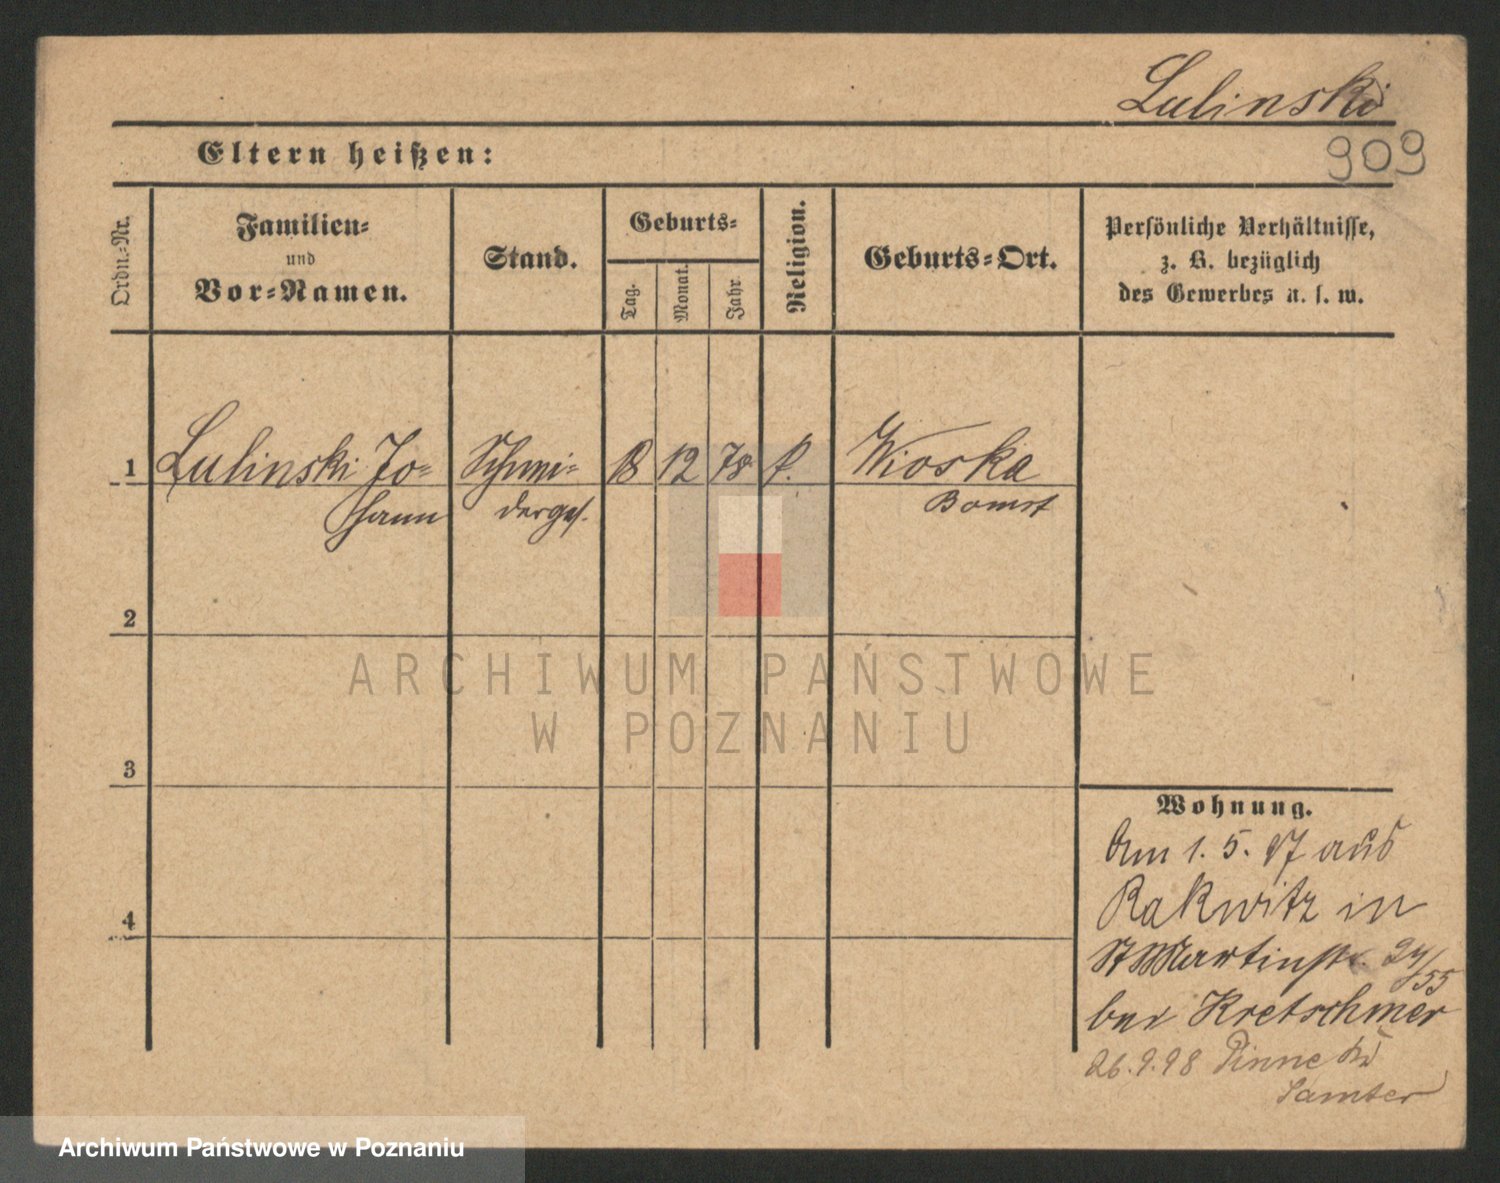 Lulinski
909
Eltern heißen:
Ordn.-Nr.
Familien-
und
Vor-Namen.
Stand.
Geburts-
Tag.
Monat.
Jahr.
Religion.
Geburts-Ort.
Persönliche Verhältnisse,
z. B. bezüglich
des Gewerbes u. s. w.
1
Lulinski Jo-
hann
Schmi-
derges.
18
12
78
k.
Wioska
Bomst
2
3
4
Wohnung.
Am 1. 5. 97 aus
Rakwitz in
St Martinstr. 24/
55
bei Kretschmer
26.9.98 Pinne Kr
Samter
ARCHIWUM PAŃSTWOWE
W POZNANIU
Archiwum Państwowe w Poznaniu